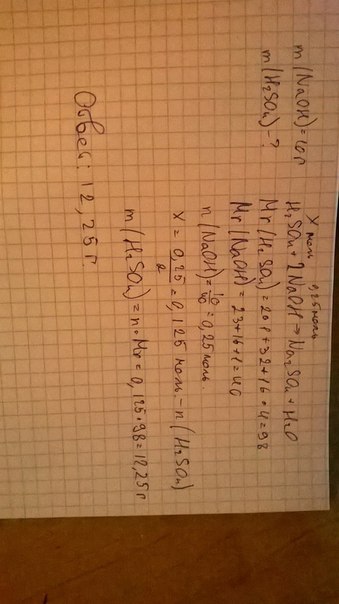 m(NaOH)=10г
m(H₂SO₄)-?
x моль 0,25 моль
H₂SO₄+2NaOH→Na₂SO₄+H₂O
Mr(H₂SO₄)=2•1+32+16•4=98
Mr(NaOH)=23+16+1=40
n(NaOH)=10/40=0,25 моль.
x=0,25/2=0,125 моль.-n(H₂SO₄)
m(H₂SO₄)=n•Mr=0,125•98=12,25г
Ответ: 12,25г.